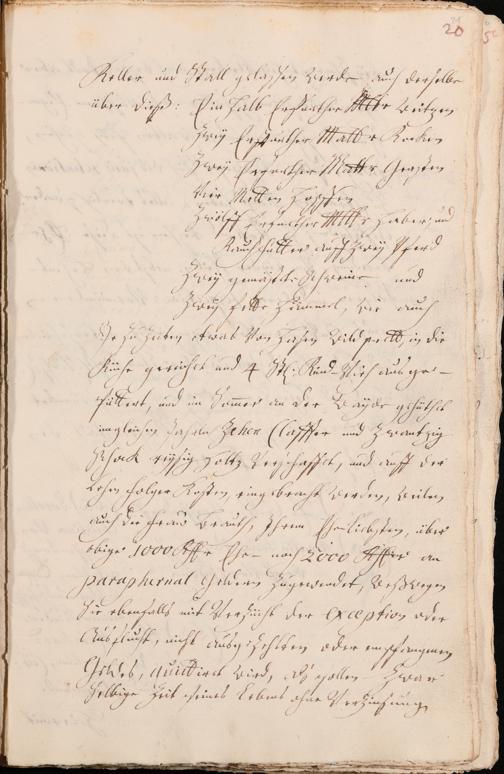 20
Keller und Stall gelaßen werde, auch derselbe
über dieses: Ein halb Erfurther Mltr Weitzen
Zwey Erfurther Maltr Rocken
Zwey Erfurther Maltr Gersten
Vier Metzen Hopffen
Zwölff Erfurther Mltr Haber, und
Rauchfutter auff Zwey Pferd
Zwey gemästete Schweine und
Zwey fette Hammel, wie auch
Je zu Zeiten etwas von Hasen Wildprett, in die
Küche gereichet und 4 Stk. Rind-Vieh ausge-
füttert, und im Sommer an der Weyde gehüthet
ingleichen Jahrs Zehen Claffter und Zwantzig
Schock reyßig Holtz verschaffet, und auff der
Lehn folger Kosten, eingebracht werden, Weilen
auch die Frau Brauth, Ihrem Ehe-Liebsten, über
obige 1000 Ehe- noch 2000 an
paraphernal Geldern zugewendet, deßwegen
Sie ebenfalls mit Verzicht der exception oder
Ausflucht, nicht ausgezehlten oder empfangenen
Geldes, quittiret wird, als sollen Zwar
selbige Zeit seines Lebens ohne Verzinßung